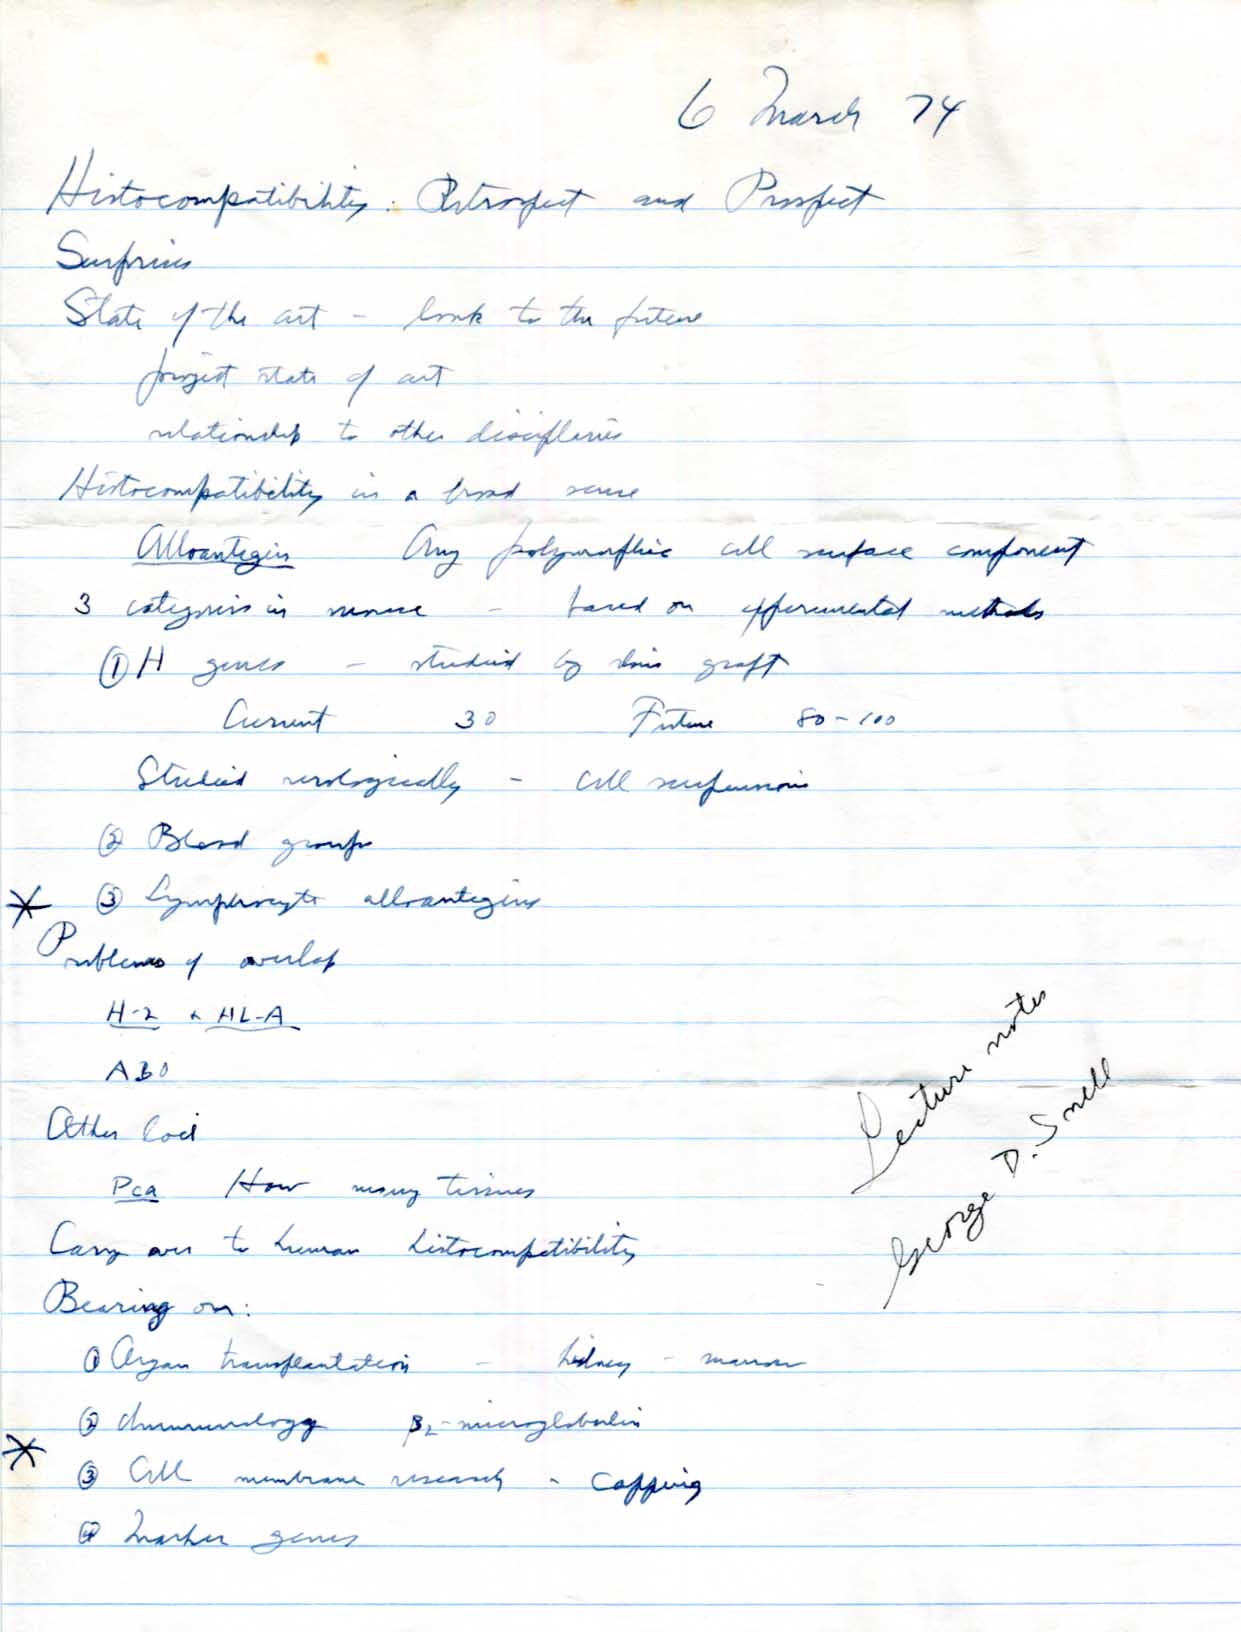 6 March 74
Histocompatibility: Retrospect and Prospect
Surprises
State of the art - look to the future
project state of art
relationship to other disciplines
Histocompatibility in a broad sense
Alloantigen Any polymorphic cell surface component
3 categories in mouse - based on experimental methods
① H genes - studied by skin graft
Current 30 Future 80-100
Studied serologically - cell suspensions
② Blood groups
* ③ Lymphocyte alloantigens
Problems of overlap
H-2 & HL-A
ABO
Other loci
Pca How many tissues
Carry over to human histocompatibility
Bearing on:
① Organ transplantation - kidney - marrow
② Immunology β2-microglobulin
* ③ Cell membrane research - capping
④ Marker genes
Lecture notes
George D. Snell